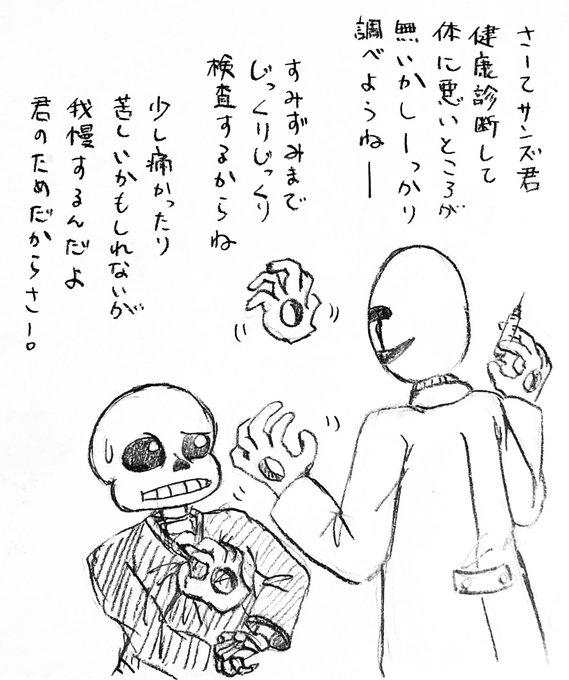 さーてサンズ君
健康診断して
体に悪いところが
無いかしーっかり
調べようねー
すみずみまで
じっくりじっくり
検査するからね
少し痛かったり
苦しいかもしれないが
我慢するんだよ
君のためだからさー。